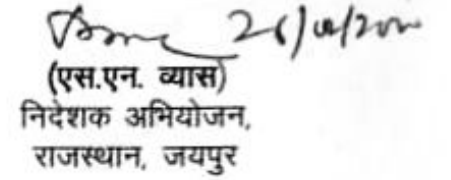 (एस.एन. व्यास)
निदेशक अभियोजन,
राजस्थान, जयपुर